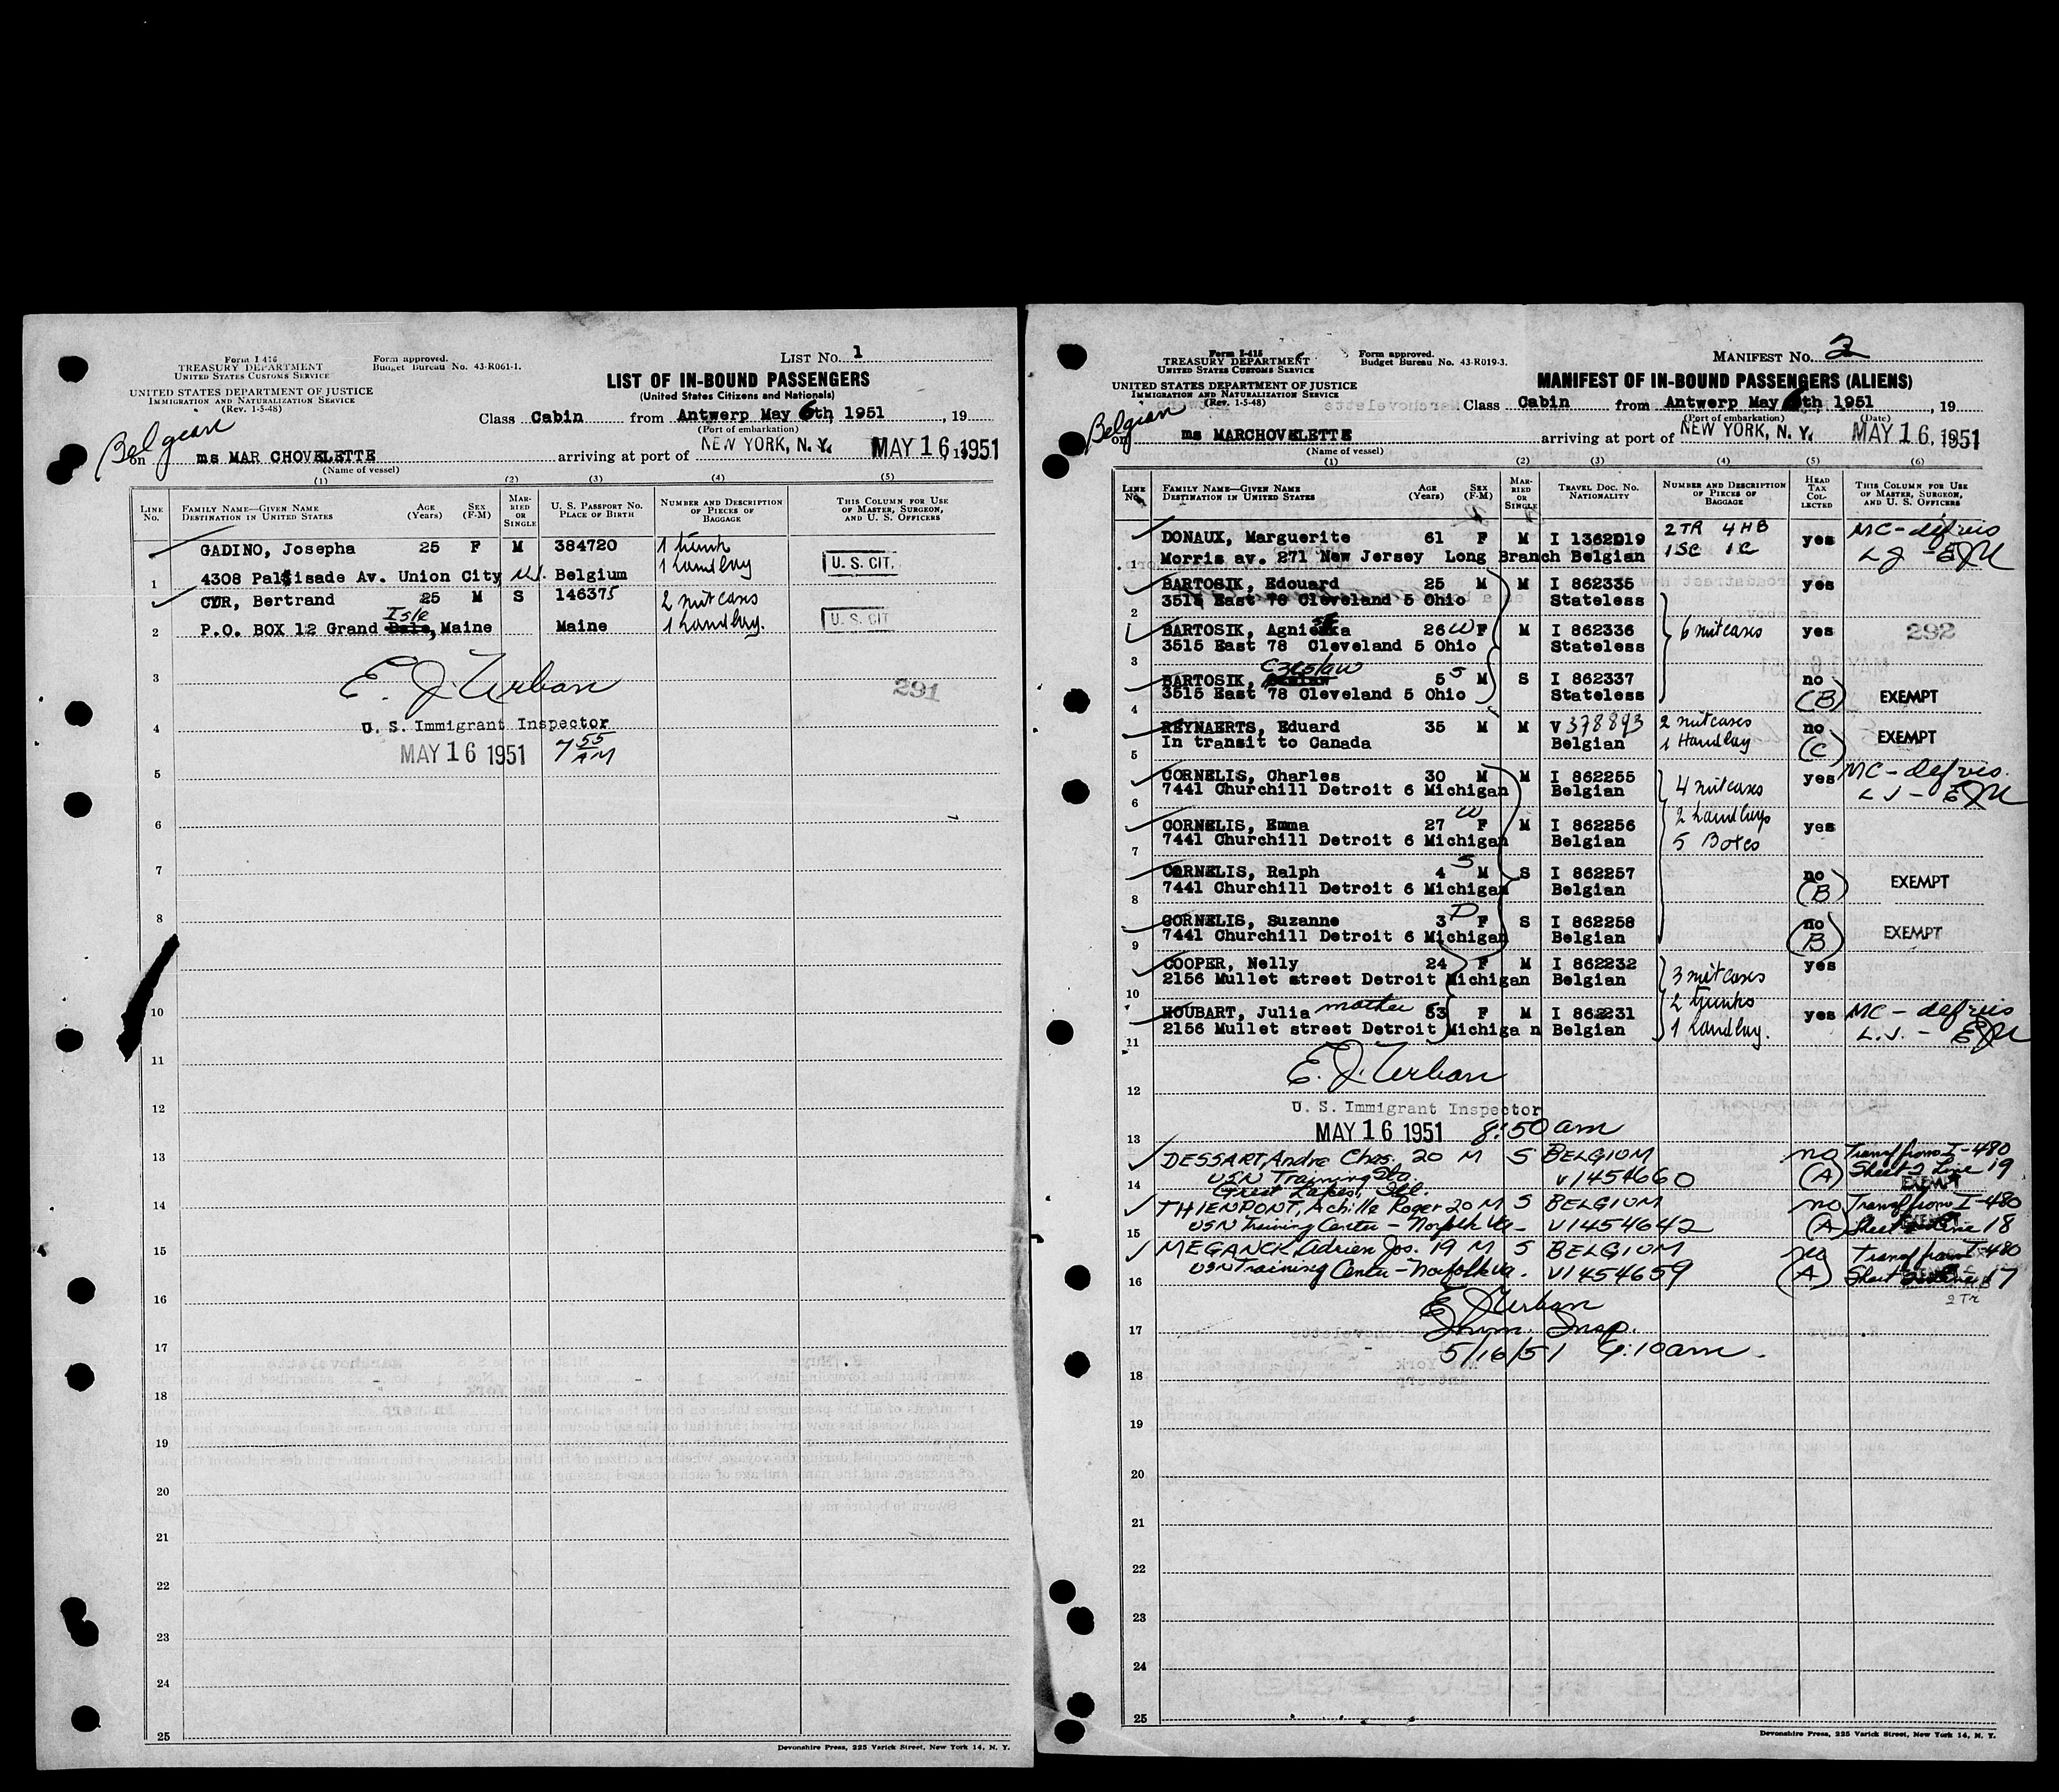 Form I 416
TREASURY DEPARTMENT
UNITED STATES CUSTOMS SERVICE
Form approved.
Budget Bureau No. 43-R061-1.
LIST No. 1
UNITED STATES DEPARTMENT OF JUSTICE
IMMIGRATION AND NATURALIZATION SERVICE
(Rev. 1-5-48)
LIST OF IN-BOUND PASSENGERS
(United States Citizens and Nationals)
Class Cabin from Antwerp May 6th, 1951, 19
(Port of embarkation)
Belgian
on ms MAR CHOVELETTE arriving at port of NEW YORK, N.Y. MAY 16 1951
(Name of vessel)
(1) (2) (3) (4) (5)
LINE No. FAMILY NAME—GIVEN NAME DESTINATION IN UNITED STATES AGE (Years) SEX (F-M) MARRIED OR SINGLE U. S. PASSPORT No. PLACE OF BIRTH NUMBER AND DESCRIPTION OF PIECES OF BAGGAGE THIS COLUMN FOR USE OF MASTER, SURGEON, AND U. S. OFFICERS
GADINO, Josepha 25 F M 384720 1 trunk
1 handbag U. S. CIT.
1 4308 Palisade Av. Union City N.J. Belgium
CYR, Bertrand 25 M S 146375 2 suitcases
Isle
2 P.O. BOX 12 Grand , Maine Maine 1 handbag. U. S. CIT
E. J. Urban
3
291
U. S. Immigrant Inspector
4
MAY 16 1951 7 55 AM
5
6
7
8
9
10
11
12
13
14
15
16
17
18
19
20
21
22
23
24
25
Devonshire Press, 225 Varick Street, New York 14, N. Y.
Form I-415
TREASURY DEPARTMENT
UNITED STATES CUSTOMS SERVICE
Form approved.
Budget Bureau No. 43-R019-3.
MANIFEST No. 2
UNITED STATES DEPARTMENT OF JUSTICE
IMMIGRATION AND NATURALIZATION SERVICE
(Rev. 1-5-48)
MANIFEST OF IN-BOUND PASSENGERS (ALIENS)
Class Cabin from Antwerp May 6th 1951, 19
(Port of embarkation) (Date)
Belgian
on ms MARCHOVELETTE arriving at port of NEW YORK, N. Y. MAY 16, 1951
(Name of vessel)
(1) (2) (3) (4) (5) (6)
LINE No. FAMILY NAME—GIVEN NAME DESTINATION IN UNITED STATES AGE (Years) SEX (F-M) MARRIED OR SINGLE TRAVEL DOC. No. NATIONALITY NUMBER AND DESCRIPTION OF PIECES OF BAGGAGE HEAD TAX COLLECTED THIS COLUMN FOR USE OF MASTER, SURGEON, AND U. S. OFFICERS
DONAUX, Marguerite 61 F M I 1362019 2 TR 4 HB yes MC - def vis
1 Morris av. 271 New Jersey Long Branch Belgian 1 SC 1 C L J - EJU
BARTOSIK, Edouard 25 M M I 862335 yes
2 3515 East 78 Cleveland 5 Ohio Stateless
BARTOSIK, Agnieszka 26 W F M I 862336 6 suitcases yes 292
3 3515 East 78 Cleveland 5 Ohio Stateless
Czeslaw
BARTOSIK, 5 S M S I 862337 no
4 3515 East 78 Cleveland 5 Ohio Stateless (B) EXEMPT
REYNAERTS, Eduard 35 M M V 378893 2 suitcases no
5 In transit to Canada Belgian 1 Handbag (C) EXEMPT
CORNELIS, Charles 30 M M I 862255 yes MC - def vis.
6 7441 Churchill Detroit 6 Michigan Belgian 4 suitcases L J - EJU
CORNELIS, Emma 27 W F M I 862256 2 handbags yes
7 7441 Churchill Detroit 6 Michigan Belgian 5 Boxes
CORNELIS, Ralph 4 S M S I 862257 no
8 7441 Churchill Detroit 6 Michigan Belgian (B) EXEMPT
CORNELIS, Suzanne 3 D F S I 862258 no
9 7441 Churchill Detroit 6 Michigan Belgian (B) EXEMPT
COOPER, Nelly 24 F M I 862232 yes
10 2156 Mullet street Detroit Michigan Belgian 3 suitcases
HOUBART, Julia mother 53 F M I 862231 2 trunks yes MC - def vis
11 2156 Mullet street Detroit Michiga n Belgian 1 handbag. L.J. - EJU
E. J. Urban
12
U. S. Immigrant Inspector
13 MAY 16 1951 8:50 am
DESSART, Andre Chas. 20 M S BELGIUM no Transf from I-480
14 USN Training Sta. V1454660 (A) Sheet 2 Line 19
Great Lakes, Ill. EXEMPT
THIENPONT, Achille Roger 20 M S BELGIUM no Transf from I-480
15 USN Training Center - Norfolk Va - V1454642 (A) Sheet Line 18
MEGANCK, Adrien Jos. 19 M S BELGIUM no Transf from I-480
16 USN Training Center - Norfolk Va. V1454659 (A) Sheet Line 17
2 Tr
E J Urban
17 Imm. Insp.
5/16/51 9:10 am.
18
19
20
21
22
23
24
25
Devonshire Press, 225 Varick Street, New York 14, N. Y.